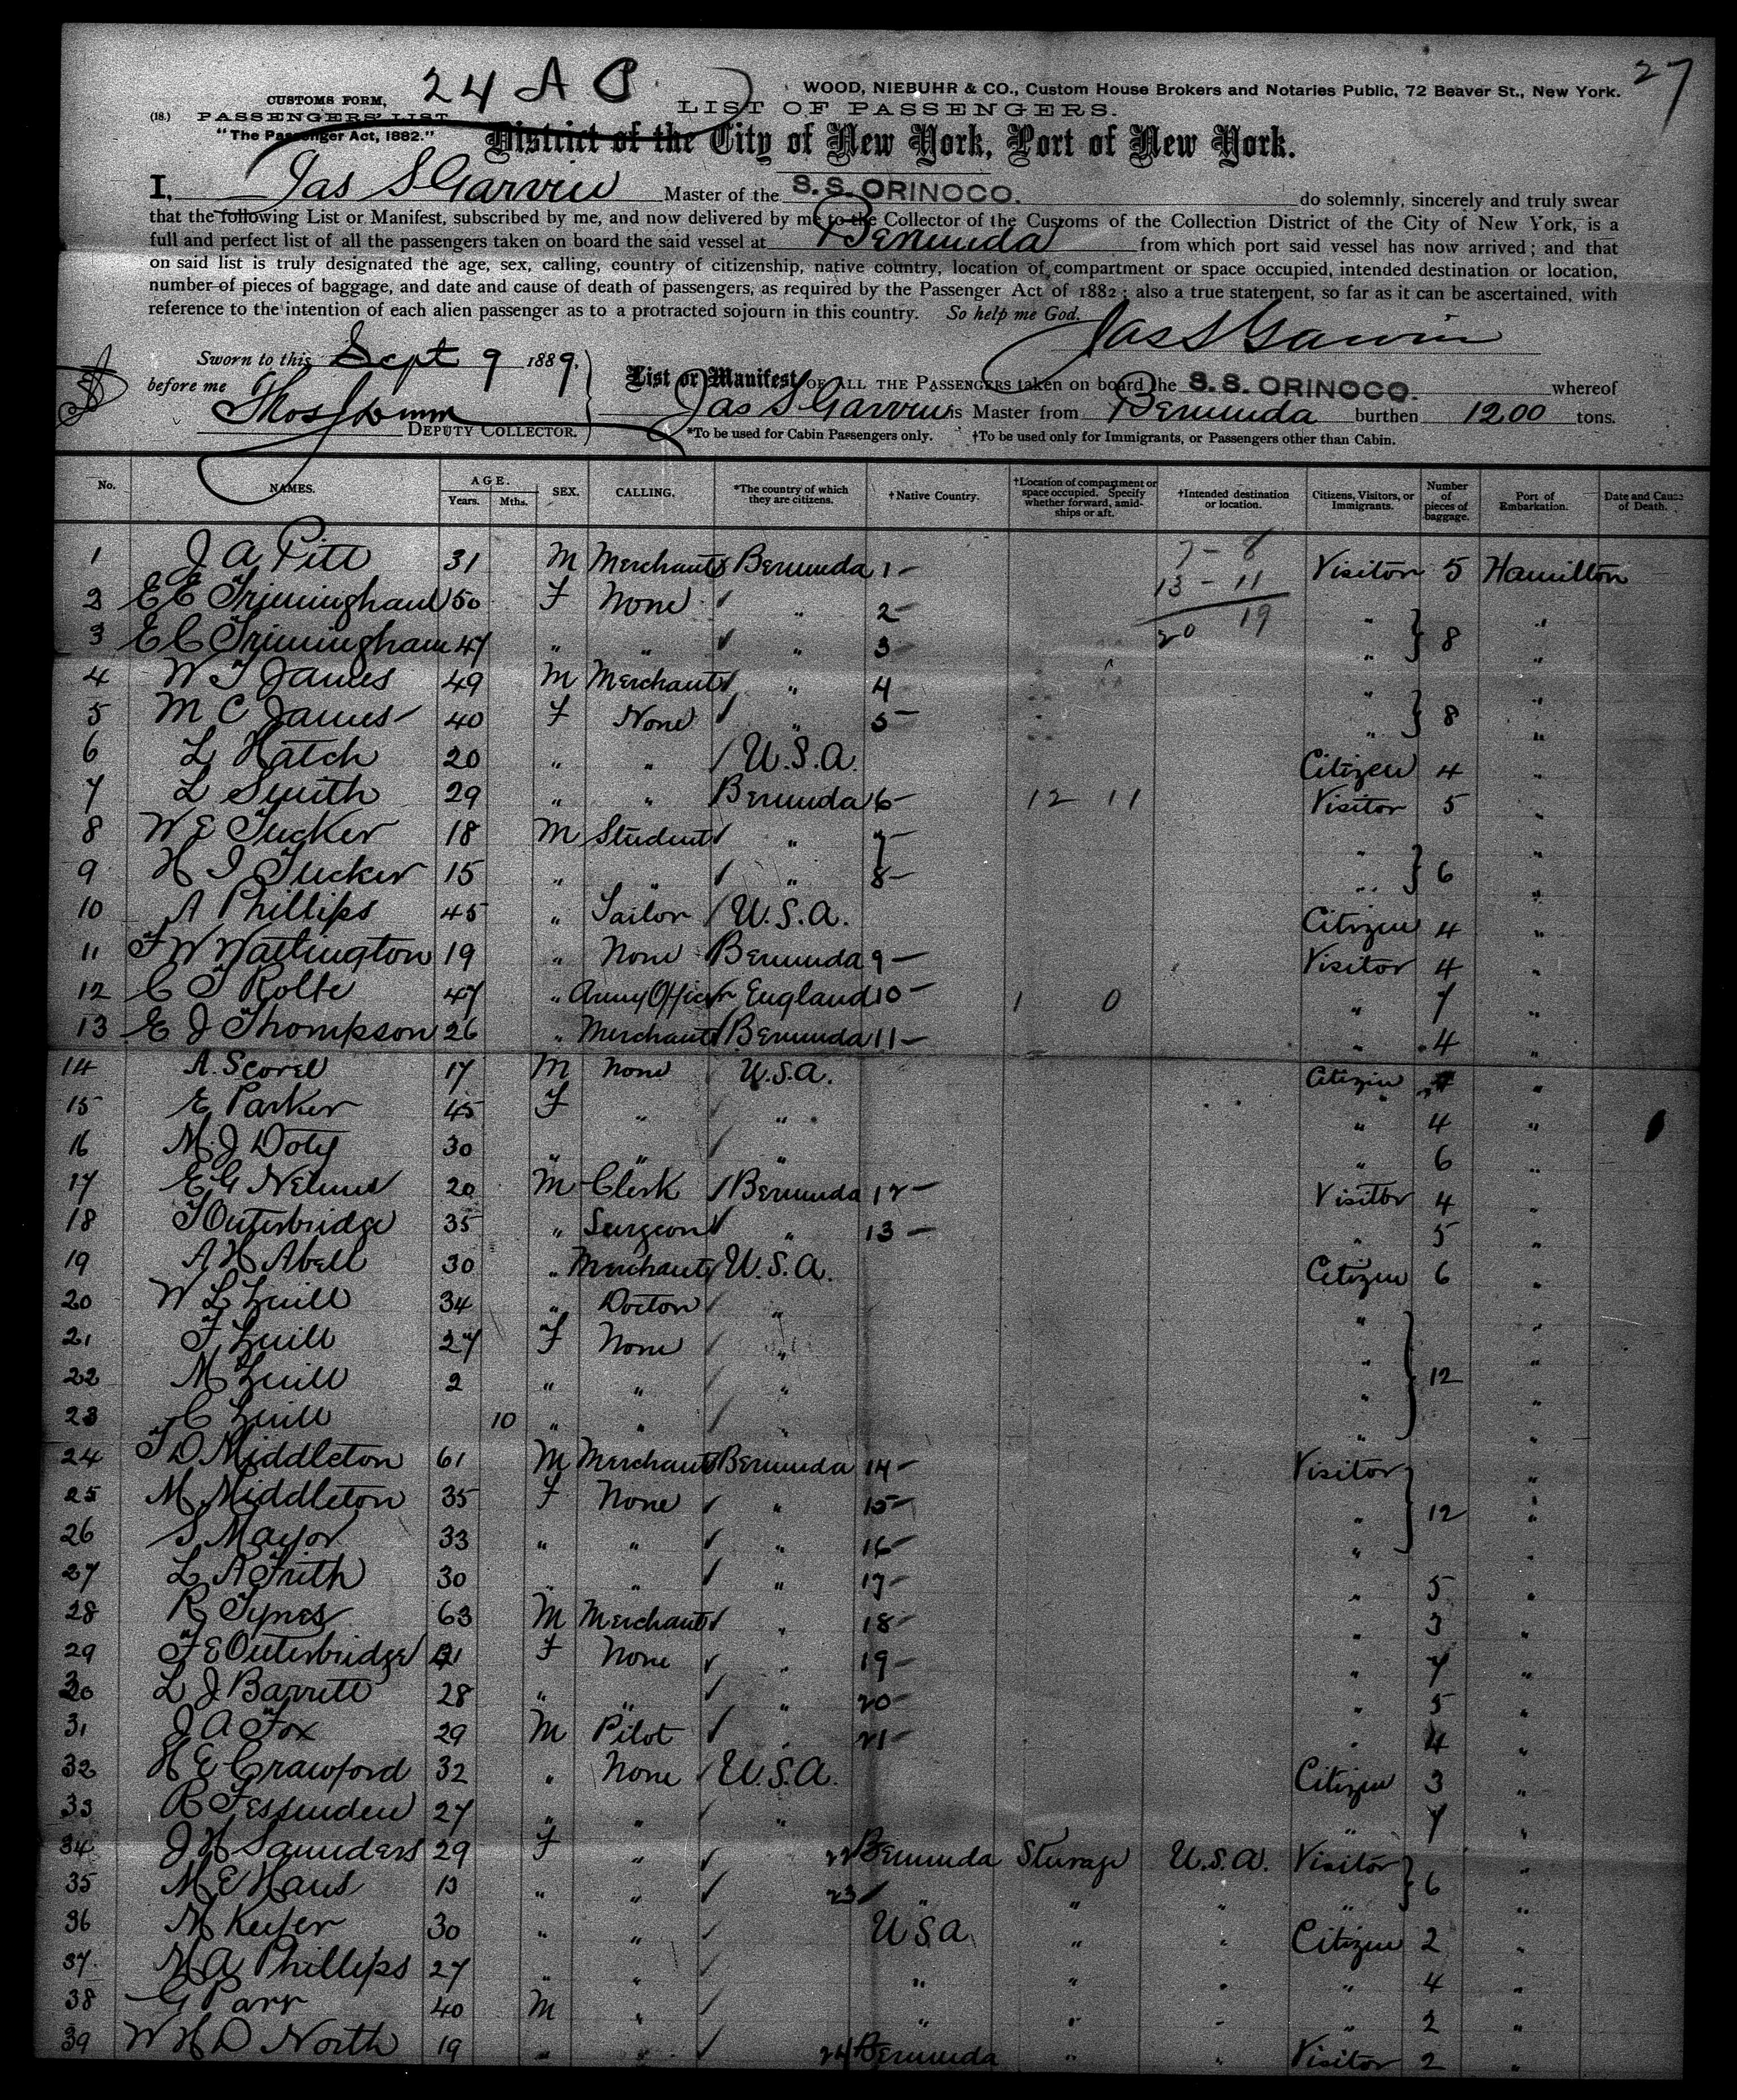 24 A B
27
WOOD, NIEBUHR & CO., Custom House Brokers and Notaries Public, 72 Beaver St., New York.
CUSTOMS FORM,
LIST OF PASSENGERS.
(18.) PASSENGERS' LIST
"The Passenger Act, 1882."
District of the City of New York, Port of New York.
I, Jas S Garvin Master of the S.S. ORINOCO. do solemnly, sincerely and truly swear
that the following List or Manifest, subscribed by me, and now delivered by me to the Collector of the Customs of the Collection District of the City of New York, is a
full and perfect list of all the passengers taken on board the said vessel at Bermuda from which port said vessel has now arrived; and that
on said list is truly designated the age, sex, calling, country of citizenship, native country, location of compartment or space occupied, intended destination or location,
number of pieces of baggage, and date and cause of death of passengers, as required by the Passenger Act of 1882; also a true statement, so far as it can be ascertained, with
reference to the intention of each alien passenger as to a protracted sojourn in this country. So help me God.
Jas S Garvin
Sworn to this Sept 9 1889.
before me
DEPUTY COLLECTOR.
List or Manifest OF ALL THE PASSENGERS taken on board the S.S. ORINOCO. whereof
Jas S Garvin is Master from Bermuda burthen 1200 tons.
*To be used for Cabin Passengers only. †To be used only for Immigrants, or Passengers other than Cabin.
No. NAMES. AGE. Years. Mths. SEX. CALLING. *The country of which they are citizens. †Native Country. †Location of compartment or space occupied. Specify whether forward, amidships or aft. †Intended destination or location. Citizens, Visitors, or Immigrants. Number of pieces of baggage. Port of Embarkation. Date and Cause of Death.
7 - 8
13 - 11
20 19
1 J A Pitt 31 M Merchant Bermuda 1 - Visitor 5 Hamilton
2 E E Trimingham 50 F None " 2 - " "
3 E C Trimingham 47 " " " 3 - " 8 "
4 W T James 49 M Merchant " 4 " "
5 M C James 40 F None " 5 - " 8 "
6 L Hatch 20 " " U.S.A. Citizen 4 "
7 L Smith 29 " " Bermuda 6 - 12 11 Visitor 5 "
8 W E Tucker 18 M Student " 7 - " "
9 H I Tucker 15 " " " 8 - " 6 "
10 A Phillips 45 " Sailor U.S.A. Citizen 4 "
11 F W Watlington 19 " None Bermuda 9 - Visitor 4 "
12 C T Rolfe 47 " Army Officer England 10 - 1 0 " 7 "
13 E J Thompson 26 " Merchant Bermuda 11 - " 4 "
14 A. Scovel 17 M None U.S.A. Citizen "
15 E Parker 45 F " " " 4 "
16 M. J Doty 30 " " " " 6 "
17 E G Nelmes 20 M Clerk Bermuda 12 - Visitor 4 "
18 T Outerbridge 35 " Surgeon " 13 - " 5 "
19 A H Abell 30 " Merchant U.S.A. Citizen 6 "
20 W L Zuill 34 " Doctor " " "
21 F Zuill 27 F None " " "
22 M Zuill 2 " " " " 12 "
23 C Zuill 10 " " " " "
24 T D Middleton 61 M Merchant Bermuda 14 - Visitor "
25 M Middleton 35 F None " 15 - " 12 "
26 S Mayor 33 " " " 16 - " "
27 L A Frith 30 " " " 17 - " 5 "
28 R Tynes 63 M Merchant " 18 - " 3 "
29 F E Outerbridge 21 F None " 19 - " 7 "
30 L J Barritt 28 " " " 20 - " 5 "
31 J A Fox 29 M Pilot " 21 - " 4 "
32 H E Crawford 32 " None U.S.A. Citizen 3 "
33 R Fessenden 27 " " " " 7 "
34 J H Saunders 29 F " 22 Bermuda Sturage U.S.A. Visitor "
35 M E Haus 13 " " 23 " " " " 6 "
36 M Keefer 30 " " U S A " " Citizen 2 "
37 M A Phillips 27 " " " " " " 4 "
38 G Parr 40 M " " " " " 2 "
39 W H D North 19 " " 24 Bermuda " " Visitor 2 "